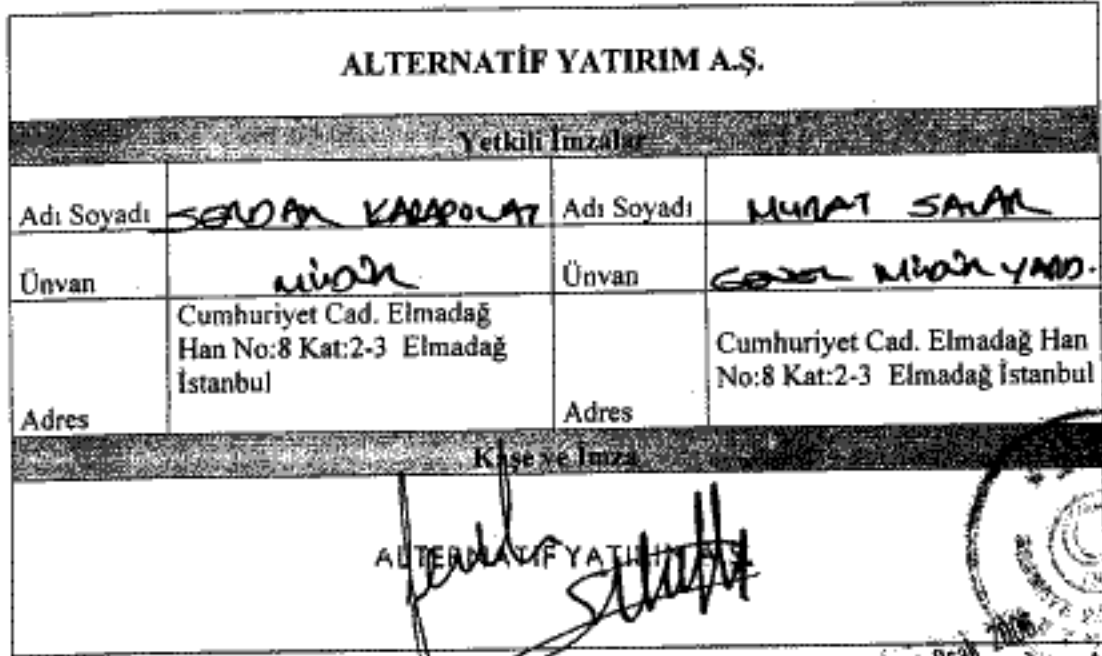 ALTERNATİF YATIRIM A.Ş.
Yetkili İmzalar
Adı Soyadı SERDAR KARAPOLAT Adı Soyadı MURAT SALAR
Ünvan MÜDÜR Ünvan GENEL MÜDÜR YARD.
Cumhuriyet Cad. Elmadağ
Han No:8 Kat:2-3 Elmadağ
İstanbul
Adres
Cumhuriyet Cad. Elmadağ Han
No:8 Kat:2-3 Elmadağ İstanbul
Adres
Kaşe ve İmza
ALTERNATİF YATIRIM A.Ş.